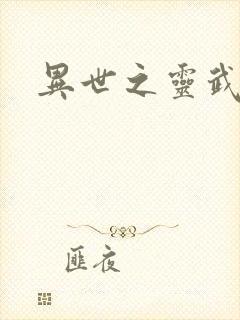 異世之靈武
匪夜